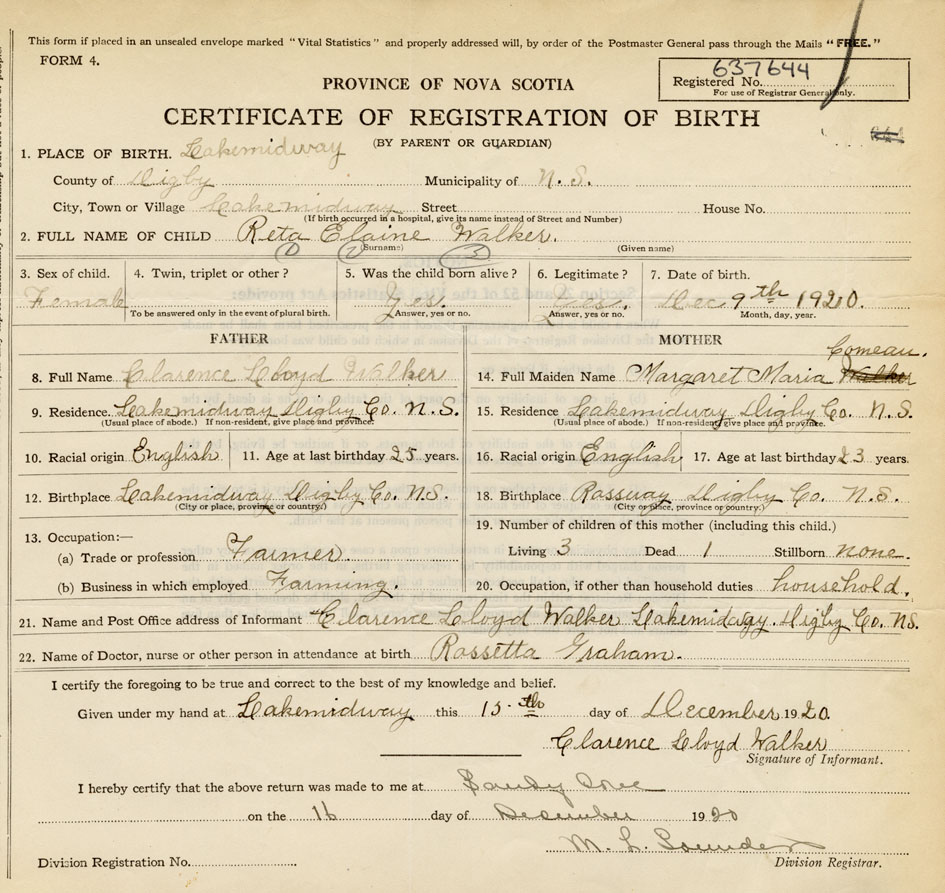 This form if placed in an unsealed envelope marked "Vital Statistics" and properly addressed will, by order of the Postmaster General pass through the Mails "FREE."
FORM 4.
637644
Registered No.
For use of Registrar General only.
PROVINCE OF NOVA SCOTIA
CERTIFICATE OF REGISTRATION OF BIRTH
(BY PARENT OR GUARDIAN)
1. PLACE OF BIRTH. Lakemidway
County of Digby Municipality of N.S.
City, Town or Village Lakemidway Street House No.
(If birth occurred in a hospital, give its name instead of Street and Number)
2. FULL NAME OF CHILD Reta Elaine Walker.
1 2 (Surname) 3 (Given name)
3. Sex of child. 4. Twin, triplet or other? 5. Was the child born alive? 6. Legitimate? 7. Date of birth.
Female Yes. Yes. Dec 9th 1920.
To be answered only in the event of plural birth. Answer, yes or no. Answer, yes or no. Month, day, year.
FATHER MOTHER
Comeau.
8. Full Name Clarence Lloyd Walker 14. Full Maiden Name Margaret Maria Walker
9. Residence. Lakemidway Digby Co. N.S. 15. Residence Lakemidway Digby Co. N.S.
(Usual place of abode.) If non-resident, give place and province. (Usual place of abode.) If non-resident give place and province.
10. Racial origin English 11. Age at last birthday 25 years. 16. Racial origin English 17. Age at last birthday 23 years.
12. Birthplace Lakemidway Digby Co. N.S. 18. Birthplace Rossway Digby Co. N.S.
(City or place, province or country.) (City or place, province or country.)
19. Number of children of this mother (including this child.)
13. Occupation:—
(a) Trade or profession Farmer Living 3 Dead 1 Stillborn none.
(b) Business in which employed Farming. 20. Occupation, if other than household duties household.
21. Name and Post Office address of Informant Clarence Lloyd Walker Lakemidway. Digby Co. NS.
22. Name of Doctor, nurse or other person in attendance at birth Rossetta Graham.
I certify the foregoing to be true and correct to the best of my knowledge and belief.
Given under my hand at Lakemidway this 15th day of December 1920.
Clarence Lloyd Walker
Signature of Informant.
I hereby certify that the above return was made to me at Sandy Cove
on the 16 day of December 1920
M. L. Saunders
Division Registration No. Division Registrar.